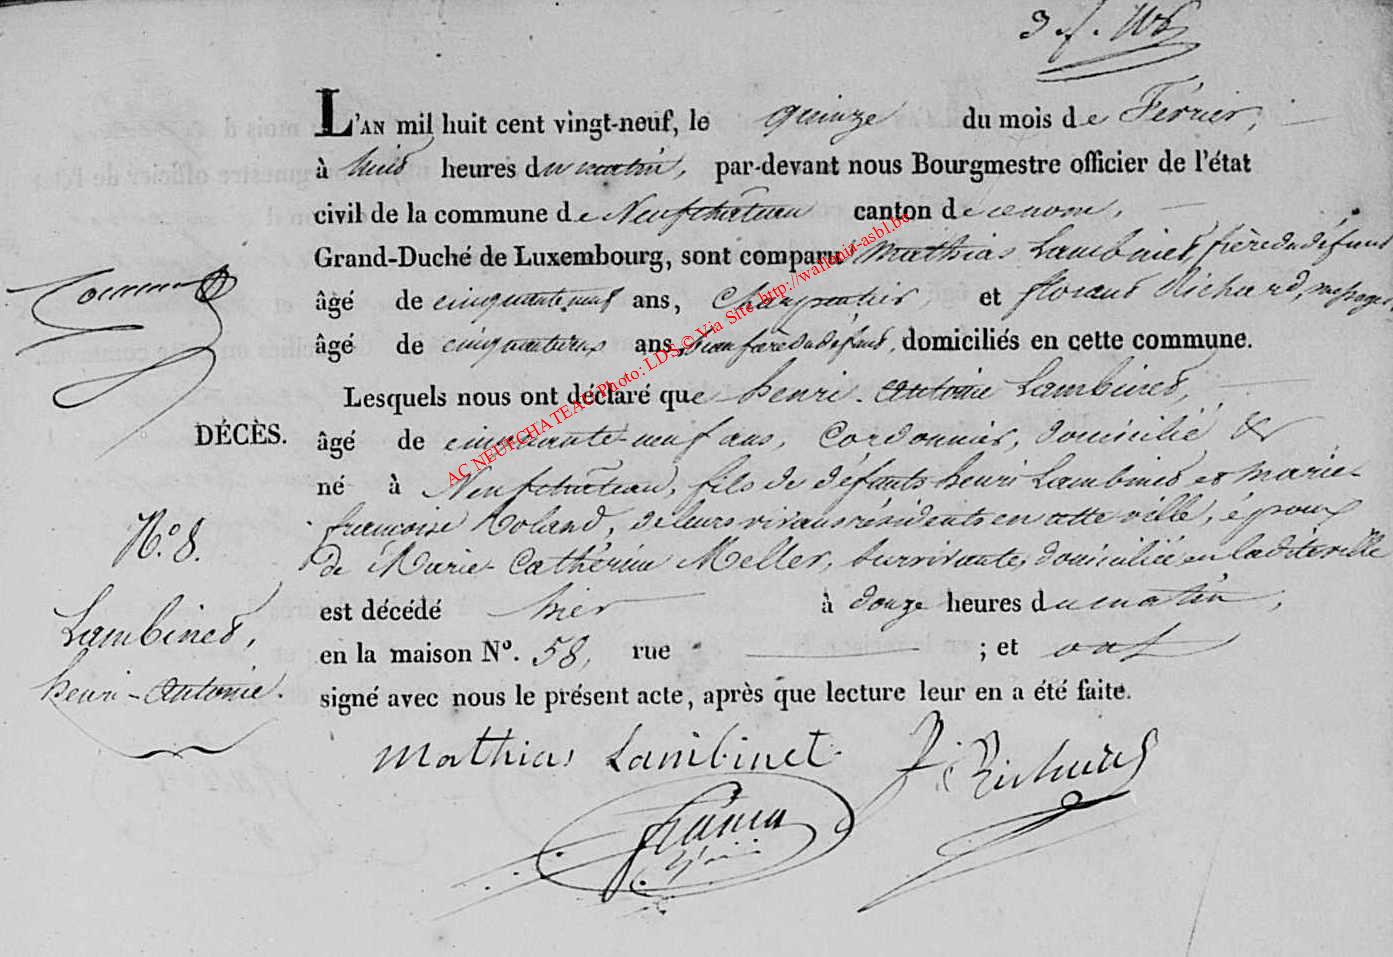 3 f.
L'AN mil huit cent vingt-neuf, le quinze du mois de Février,
à huit heures du matin, par-devant nous Bourgmestre officier de l'état
civil de la commune de Neufchateau canton de ce nom,
Grand-Duché de Luxembourg, sont comparu Mathias Lambinet, frère du défunt
âgé de cinquante neuf ans, Charpentier, et florent Richard, messager,
âgé de cinquante ans, beau frère du défunt, domiciliés en cette commune.
Lesquels nous ont déclaré que henri-Antoine Lambinet,
DÉCÈS.
âgé de cinquante-neuf ans, Cordonnier, domicilié &
né à Neufchateau, fils de défunts henri Lambinet et marie-
françoise Roland, de leurs vivans résidents en cette ville, époux
de Marie-Catherine Meller, survivante, domiciliée en ladite ville
est décédé hier à douze heures du matin,
en la maison Nº. 58, rue ; et ont
signé avec nous le présent acte, après que lecture leur en a été faite.
N.º 8.
Lambinet,
henri-Antoine.
Mathias Lambinet
F. Richard
AC NEUFCHATEAU Photo: LDS © Via Site http://wallonia-asbl.be